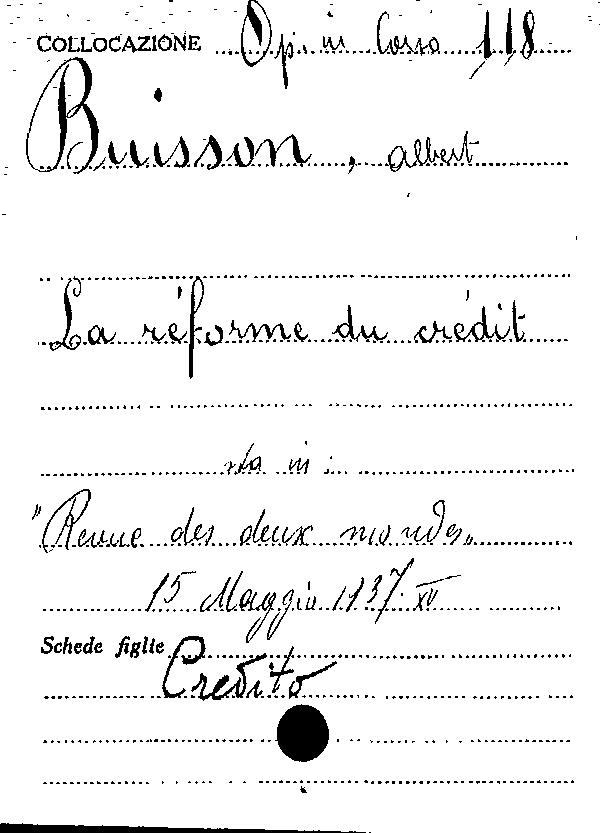 COLLOCAZIONE Op. in Corso 118
Buisson, Albert
La réforme du crédit
sta in :
"Revue des deux mondes"
15 Maggio 1937. XV
Schede figlie
Credito